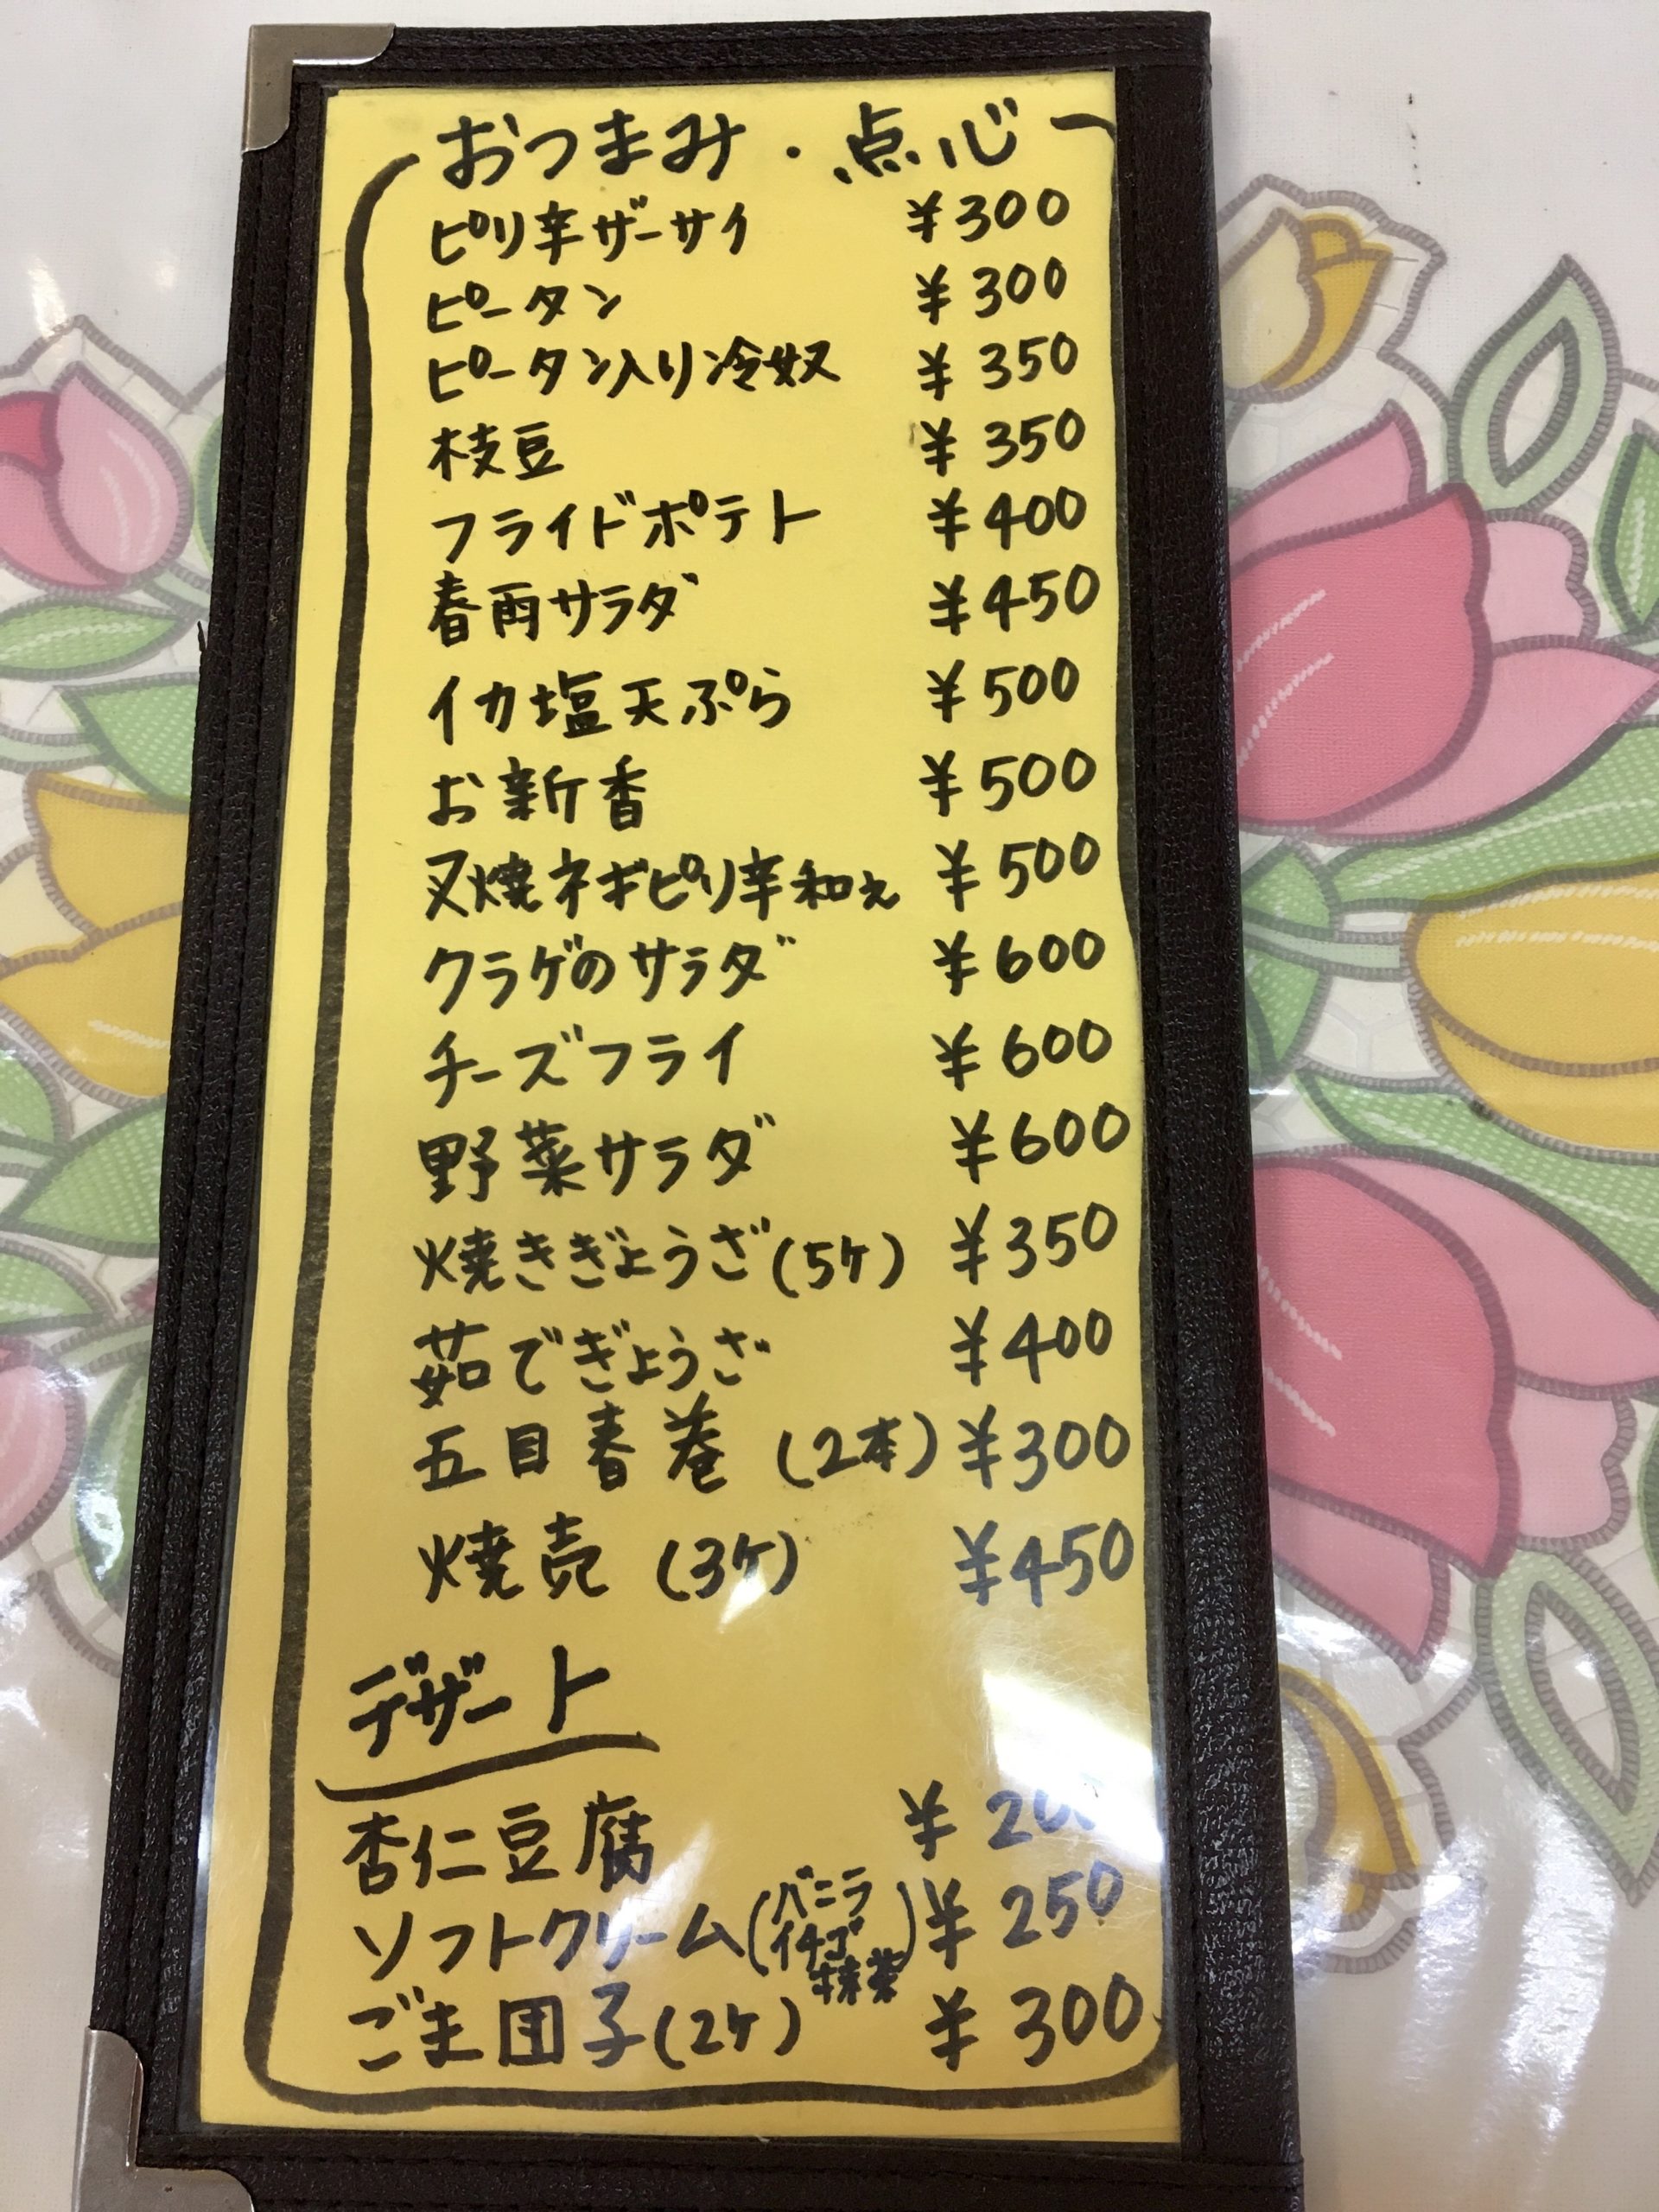 おつまみ・点心
ピリ辛ザーサイ ¥300
ピータン ¥300
ピータン入り冷奴 ¥350
枝豆 ¥350
フライドポテト ¥400
春雨サラダ ¥450
イカ塩天ぷら ¥500
お新香 ¥500
叉焼ネギピリ辛和え ¥500
クラゲのサラダ ¥600
チーズフライ ¥600
野菜サラダ ¥600
焼きぎょうざ(5ケ) ¥350
茹でぎょうざ ¥400
五目春巻 (2本) ¥300
焼売 (3ケ) ¥450
デザート
杏仁豆腐 ¥
ソフトクリーム(バニラ イチゴ 抹茶) ¥250
ごま団子(2ケ) ¥300